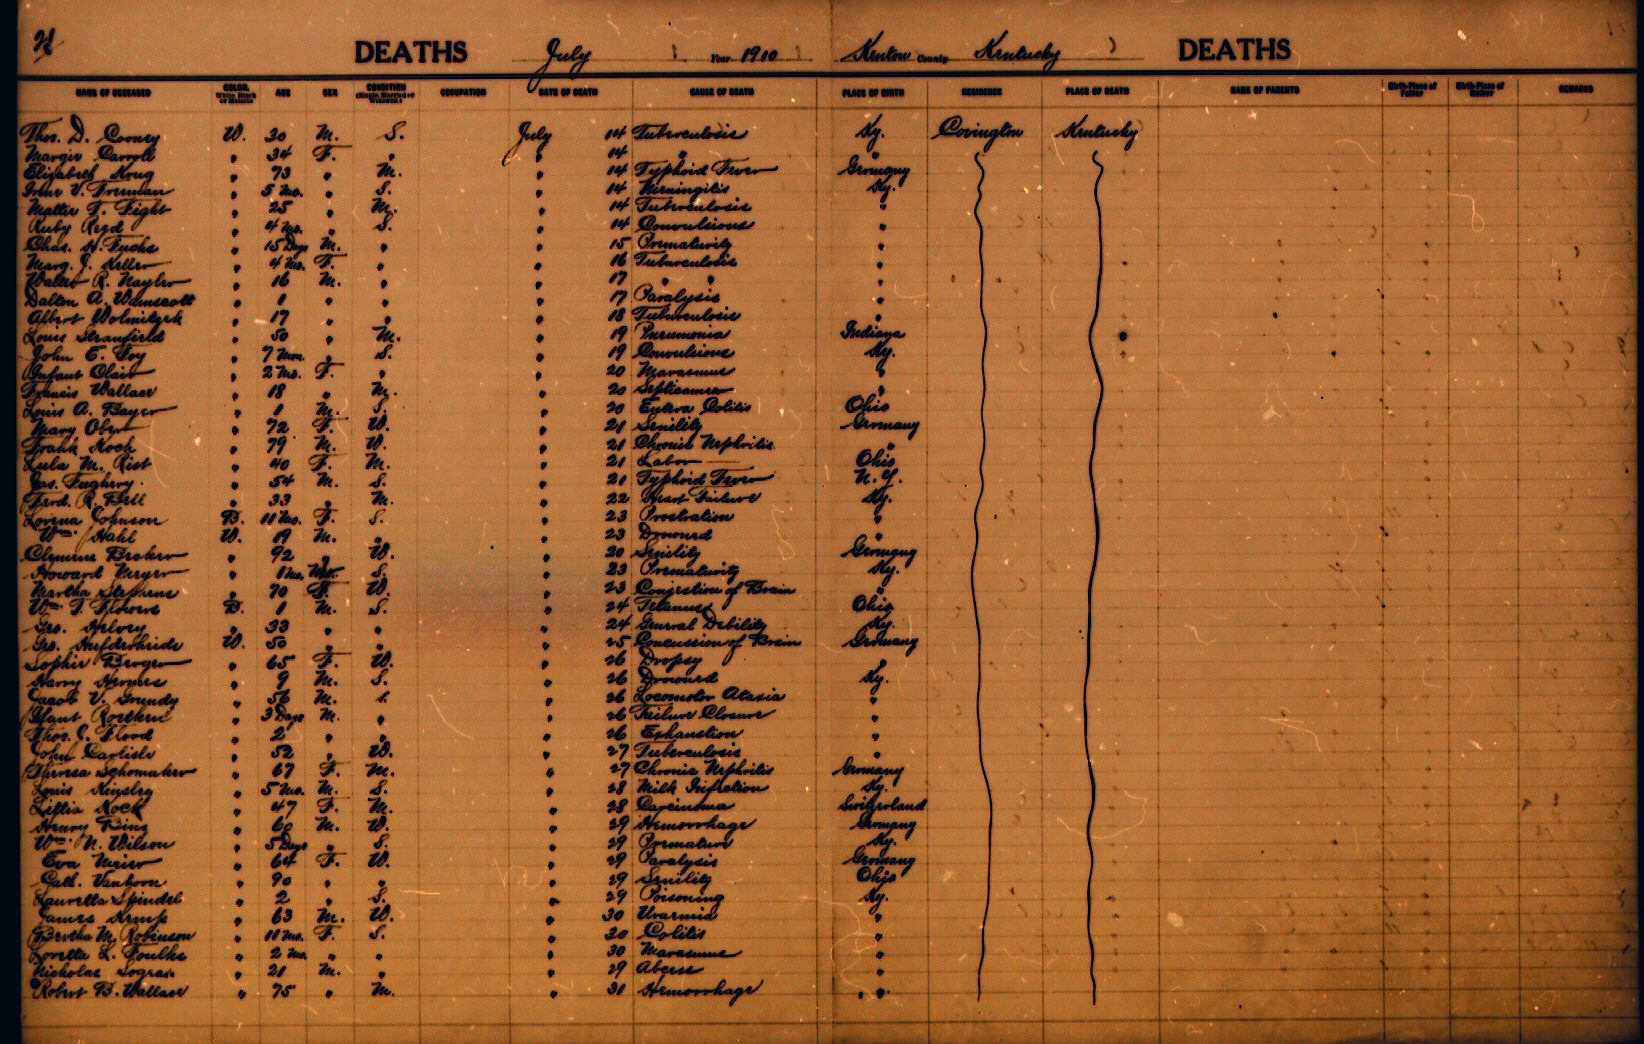 DEATHS July Year 1910 Kenton County Kentucky DEATHS
NAME OF DECEASED COLOR White, Black or Mulatto AGE SEX CONDITION (Single, Married or Widowed.) OCCUPATION DATE OF DEATH CAUSE OF DEATH PLACE OF BIRTH RESIDENCE PLACE OF DEATH NAME OF PARENTS Birth-Place of Father Birth-Place of Mother REMARKS
Thos. D. Cooney W. 30 M. S. July 14 Tuberculosis Ky. Covington Kentucky
Margie Carroll " 34 F. " " 14 " "
Elizabeth Krug " 73 " M. " 14 Typhoid Fever Germany
Irene V. Freeman " 5 Mo. " S. " 14 Meningitis Ky.
T. Fight " 25 " M. " 14 Tuberculosis "
Ruby Reed " 4 Mo. " S. " 14 Convulsions "
Chas. H. Fuchs " 15 Days M. " " 15 Prematurity "
Marg. J. Keller " 4 Mo. F. " " 16 Tuberculosis "
Walter R. Naylor " 16 M. " " 17 " " "
Dalton A. Wainscott " 1 " " " 17 Paralysis "
Albert " 17 " " " 18 Tuberculosis "
Louis Stansfield " 50 " M. " 19 Pneumonia Indiana
John E. Foy " 7 Mon. " S. " 19 Convulsions Ky.
Infant Clair " 2 Mo. F. " " 20 Marasmus "
Francis Wallace " 18 " M. " 20 Septicaemia "
Louis A. Bayer " 1 M. S. " 20 Entero Colitis Ohio
Mary Ober " 72 F. W. " 21 Senility Germany
Frank Koch " 79 M. W. " 21 Chronic Nephritis "
Lula M. Rist " 40 F. M. " 21 Labor Ohio
Jas. Fughery. " 54 M. S. " 21 Typhoid Fever N. Y.
Fred. R. Bell " 33 " M. " 22 Heart Failure Ky.
Lorena Johnson B. 11 Mo. F. S. " 23 Prostration "
Wm. Hahl W. 19 M. " " 23 Drowned "
Clemens Becker " 92 " W. " 20 Senility Germany
Howard Meyer " 1 Mo. S. " 23 Prematurity Ky.
Martha Stephens " 70 F. W. " 23 Conjestion of Brain "
Wm. T. Flowers B. 1 M. S. " 24 Tetanus Ohio
Geo. Helvey " 33 " " " 24 General Debility Ky.
Geo. Aufderheide W. 50 " " " 25 Concussion of Brain Germany
Sophie Berger " 65 F. W. " 26 Dropsy "
Harry " 9 M. S. " 26 Drowned Ky.
Jacob V. Grundy " 56 M. s. " 26 Locomotor Ataxia "
Infant " 3 Days M. " " 26 Failure Closure "
Thos. J. Flood " 2 " " " 26 Exhaustion "
John Carlisle " 52 " W. " 27 Tuberculosis "
Theresa Schomaker " 67 F. M. " 27 Chronic Nephritis Germany
Louis Kinsley " 5 Mo. M. S. " 28 Milk Infection Ky.
Lillia Kock " 47 F. M. " 28 Carcinoma Switzerland
Henry Bing " 60 M. W. " 29 Hemorrhage Germany
Wm. N. Wilson " 5 Days " S. " 29 Premature Ky.
Eva Meier " 64 F. W. " 29 Paralysis Germany
Cath. Vanhorn " 90 " " " 29 Senility Ohio
Lauretta Spindel " 2 " S. " 29 Poisoning Ky.
James Kemp " 63 M. W. " 30 Uraemia "
Bertha M. Robinson " 11 Mo. F. S. " 30 Colitis "
Loretta L. Foulks " 2 Mo. " " " 30 Marasmus "
Nicholas " 21 M. " " 29 "
Robert B. Wallace " 75 " M. " 31 Hemorrhage "